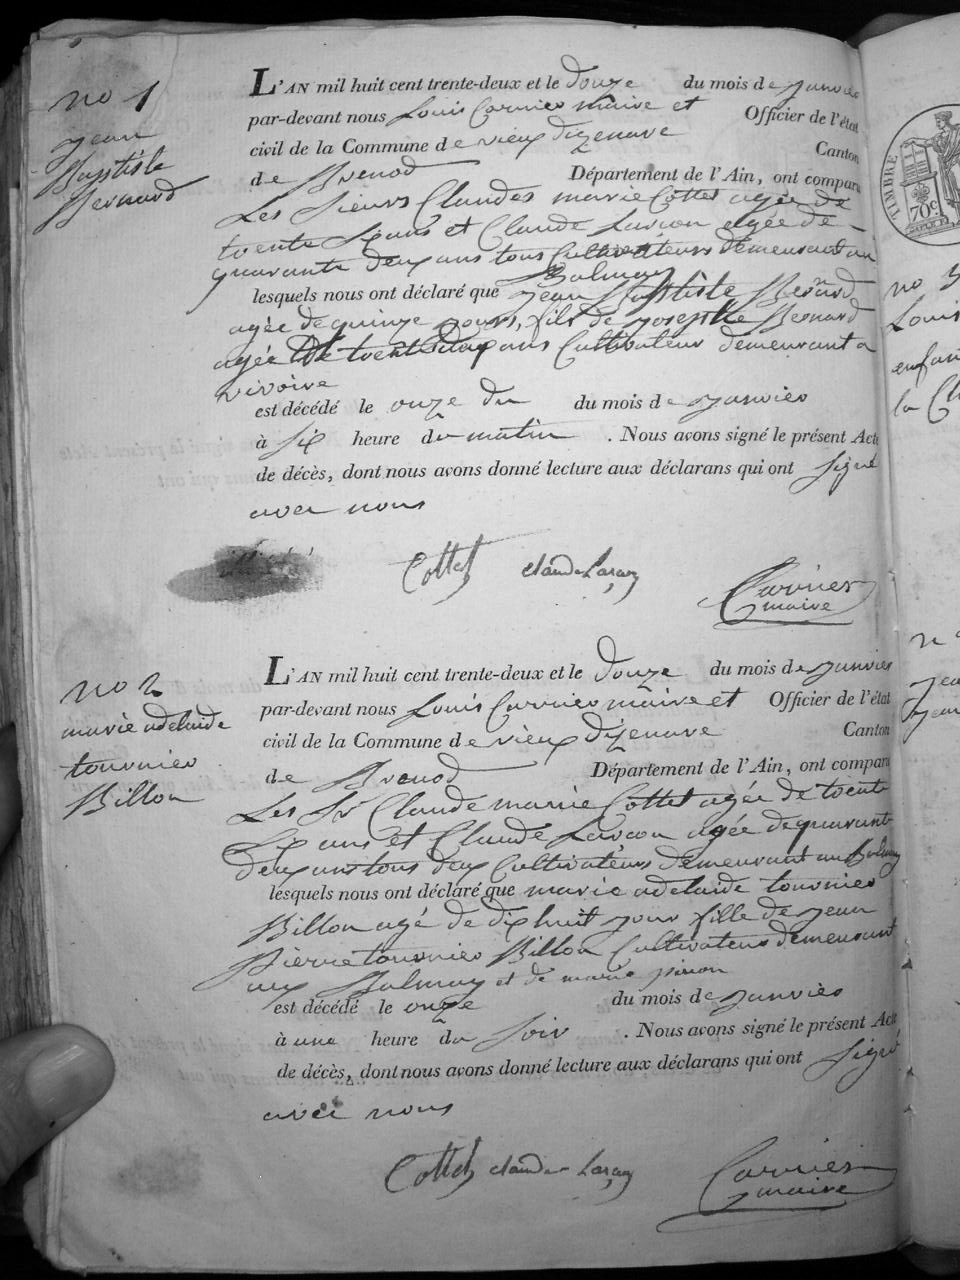 no 1
jean
Baptiste
Bernard
L'AN mil huit cent trente-deux et le douze du mois de janvier
par-devant nous Louis Carrier maire et Officier de l'état
civil de la Commune de vieux dizenave Canton
de Brenod Département de l'Ain, ont comparu
Les sieurs Claudes marie Cottet agée de
trente ans et Claude Larçon agée de
quarante deux ans tous Cultivateurs demeurant au
Balmay
lesquels nous ont déclaré que jean Baptiste Bernard
agée de quinze jours, fils de josephe Bernard
agée de trente ans Cultivateur demeurant a
vivoire
est décédé le onze du du mois de janvier
à six heure du matin . Nous avons signé le présent Acte
de décès, dont nous avons donné lecture aux déclarans qui ont signé
avec nous
Cottet claude Larçon Carrier
maire
no 2
marie adelaide
tournier
Billon
L'AN mil huit cent trente-deux et le douze du mois de janvier
par-devant nous Louis Carrier maire et Officier de l'état
civil de la Commune de vieux dizenave Canton
de Brenod Département de l'Ain, ont comparu
Les Sr Claude marie Cottet agée de trente
ans et Claude Larçon agée de quarante
deux ans tous deux Cultivateurs demeurant au Balmay
lesquels nous ont déclaré que marie adelaide tournier
Billon agé de dix huit jour fille de jean
Pierre tournier Billon Cultivateur demeurant
aux Balmay et de marie
est décédé le onze du mois de janvier
à une heure du soir . Nous avons signé le présent Acte
de décès, dont nous avons donné lecture aux déclarans qui ont signé
avec nous
Cottet claude Larçon Carrier
maire
TIMBRE
70c
no 3
Louis
enfan
la